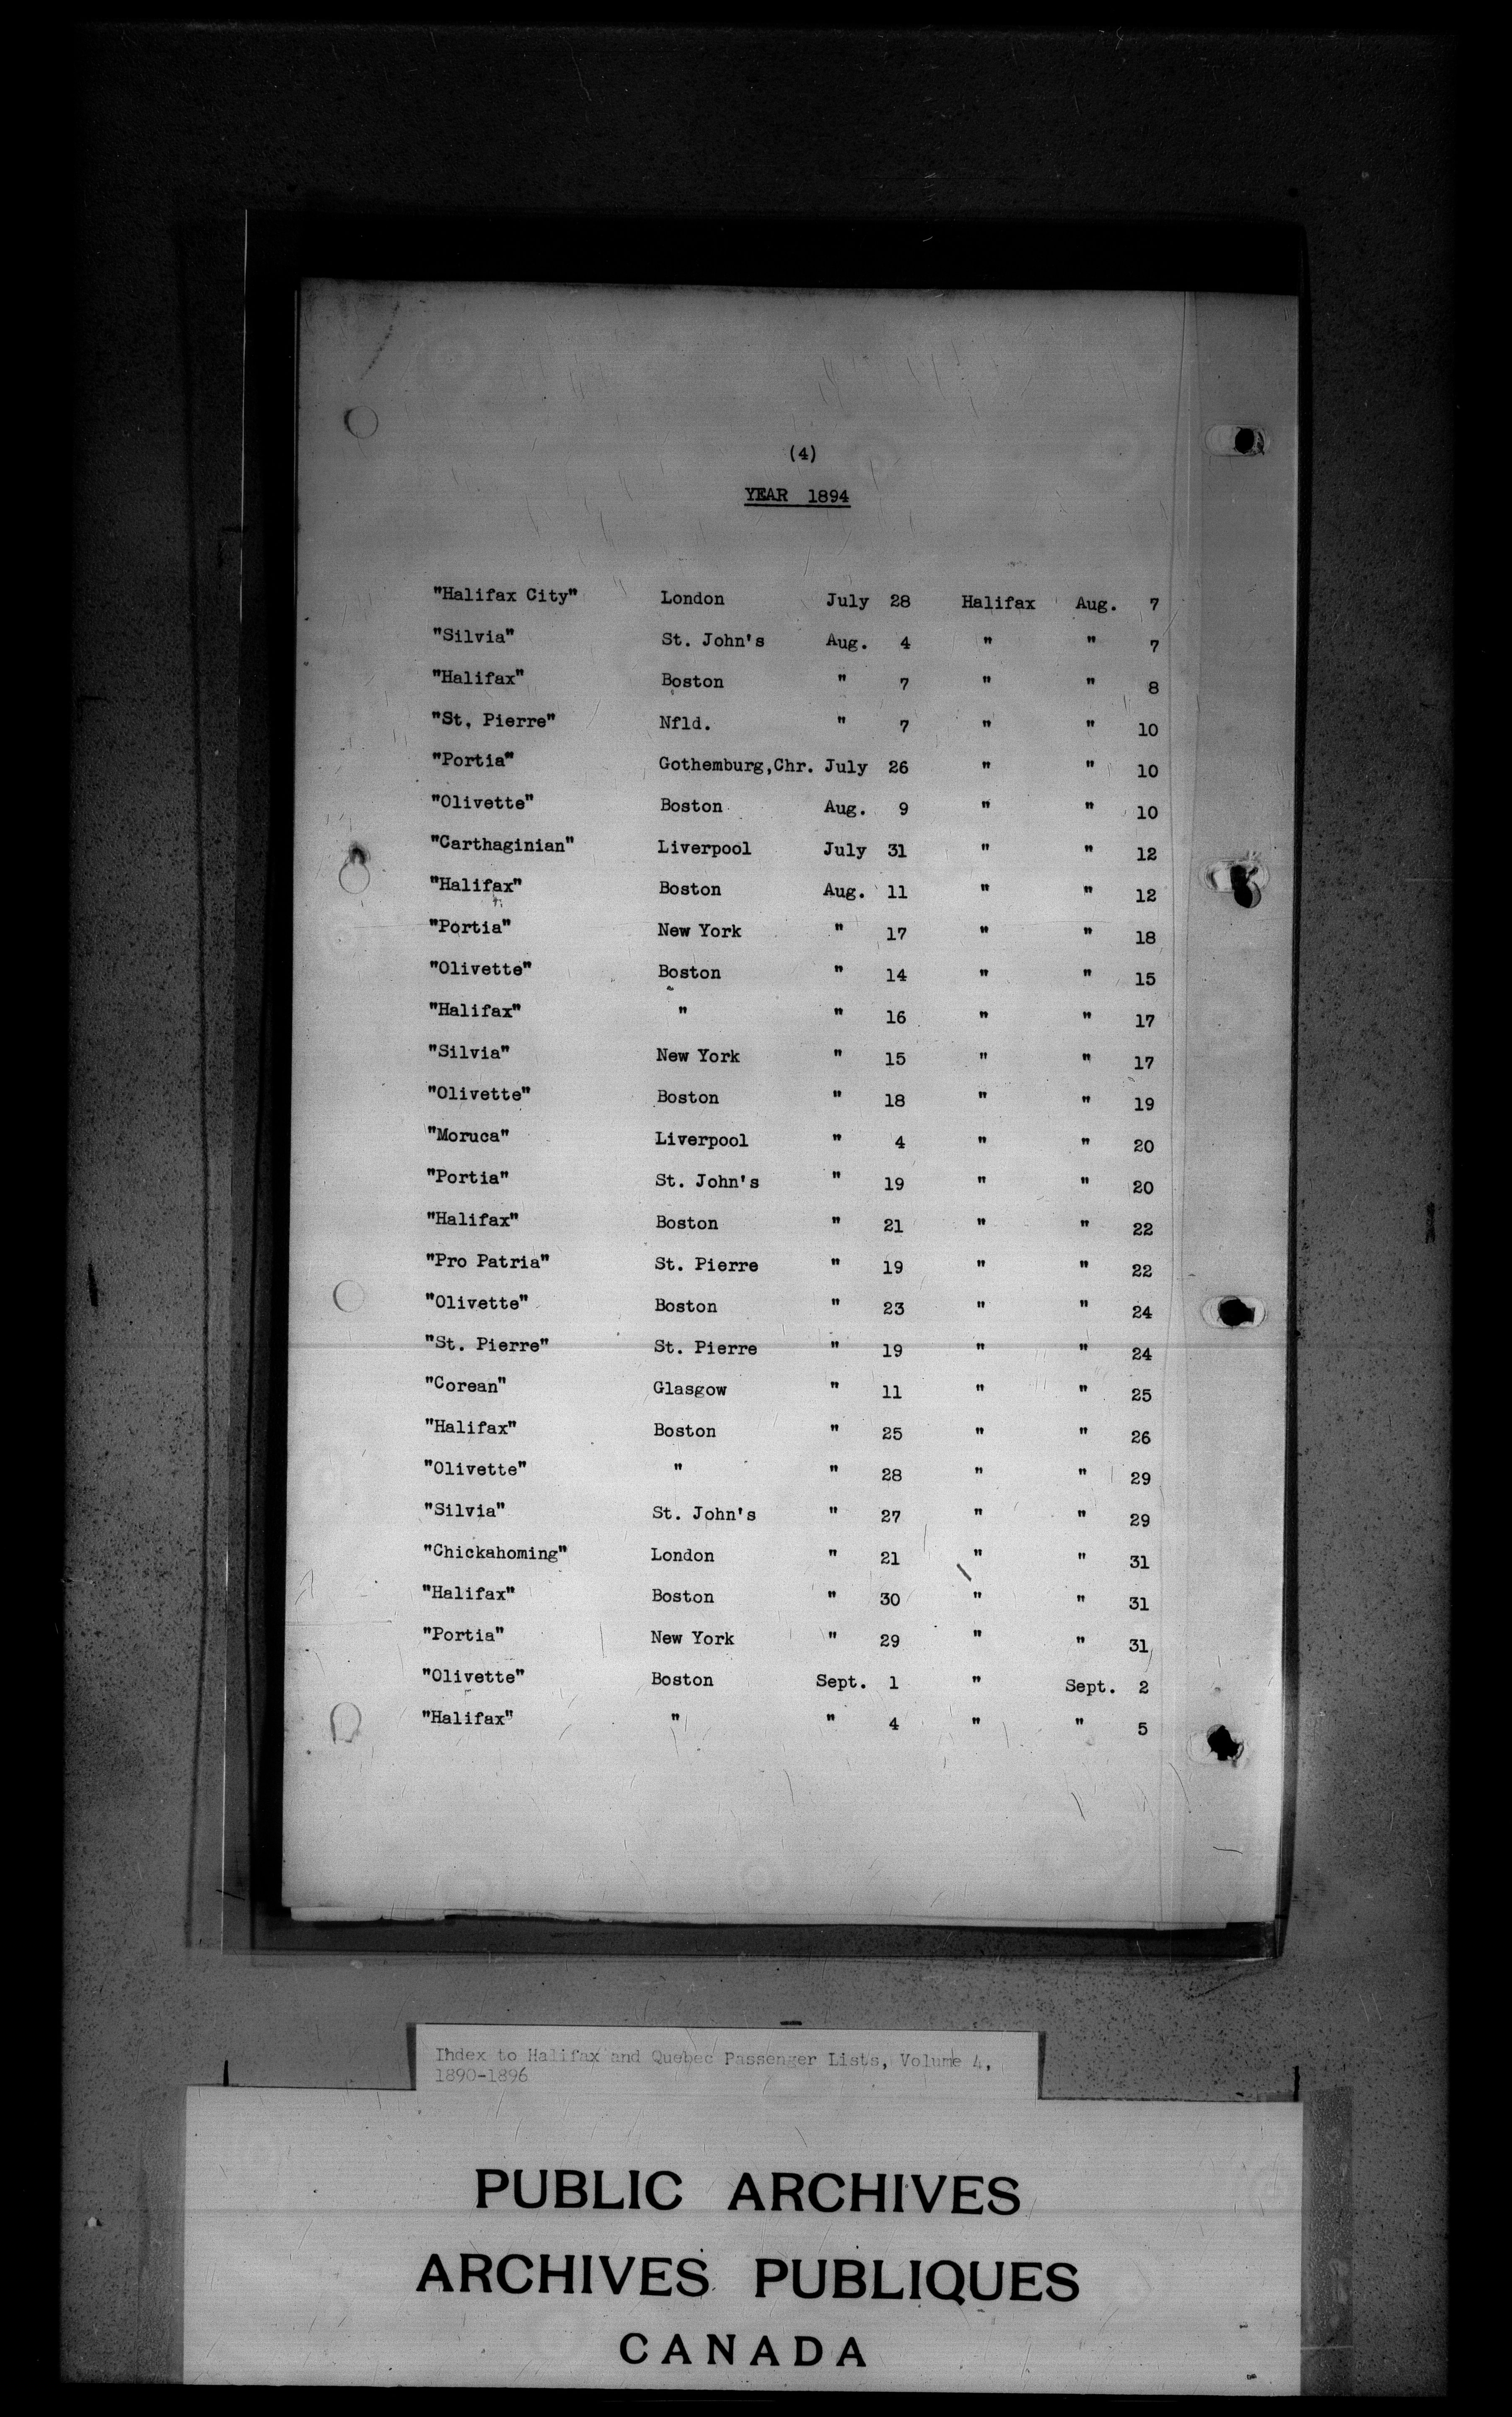 (4)
YEAR 1894
"Halifax City" London July 28 Halifax Aug. 7
"Silvia" St. John's Aug. 4 " " 7
"Halifax" Boston " 7 " " 8
"St. Pierre" Nfld. " 7 " " 10
"Portia" Gothemburg,Chr. July 26 " " 10
"Olivette" Boston Aug. 9 " " 10
"Carthaginian" Liverpool July 31 " " 12
"Halifax" Boston Aug. 11 " " 12
"Portia" New York " 17 " " 18
"Olivette" Boston " 14 " " 15
"Halifax" " " 16 " " 17
"Silvia" New York " 15 " " 17
"Olivette" Boston " 18 " " 19
"Moruca" Liverpool " 4 " " 20
"Portia" St. John's " 19 " " 20
"Halifax" Boston " 21 " " 22
"Pro Patria" St. Pierre " 19 " " 22
"Olivette" Boston " 23 " " 24
"St. Pierre" St. Pierre " 19 " " 24
"Corean" Glasgow " 11 " " 25
"Halifax" Boston " 25 " " 26
"Olivette" " " 28 " " 29
"Silvia" St. John's " 27 " " 29
"Chickahoming" London " 21 " " 31
"Halifax" Boston " 30 " " 31
"Portia" New York " 29 " " 31
"Olivette" Boston Sept. 1 " Sept. 2
"Halifax" " " 4 " " 5
Index to Halifax and Quebec Passenger Lists, Volume 4,
1890-1896
PUBLIC ARCHIVES
ARCHIVES PUBLIQUES
CANADA